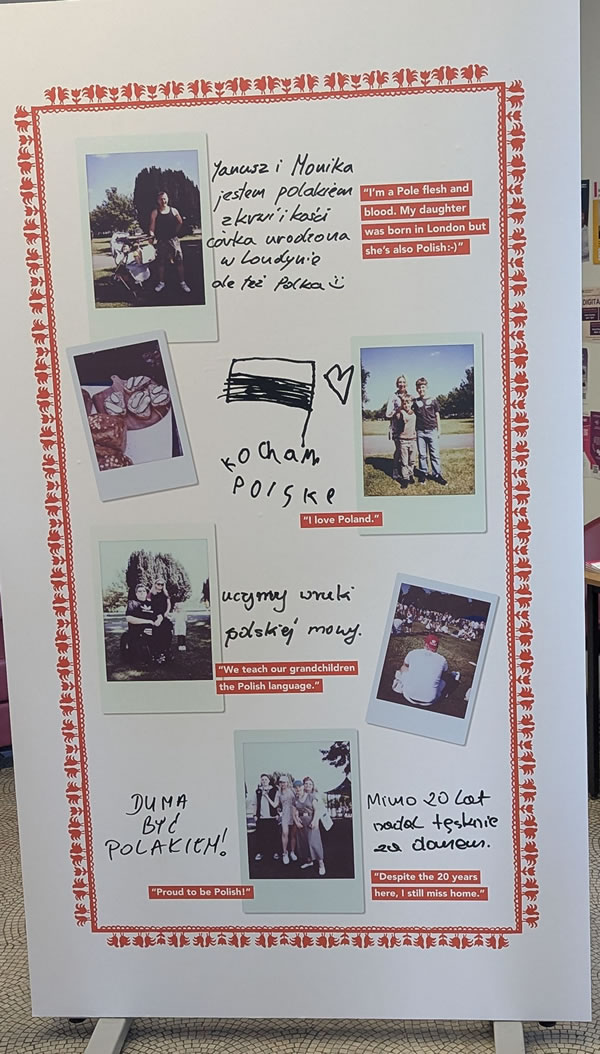 Janusz i Monika
jestem polakiem
z krwi i kości
córka urodzona
w Londynie
ale też Polka
"I'm a Pole flesh and
blood. My daughter
was born in London but
she's also Polish:-)"
KOCHAM
POLSKĘ
"I love Poland."
uczymy wnuki
polskiej mowy.
"We teach our grandchildren
the Polish language."
DUMA
BYĆ
POLAKIEM!
"Proud to be Polish!"
Mimo 20 lat
nadal tęsknie
za domem.
"Despite the 20 years
here, I still miss home."
DIGITA